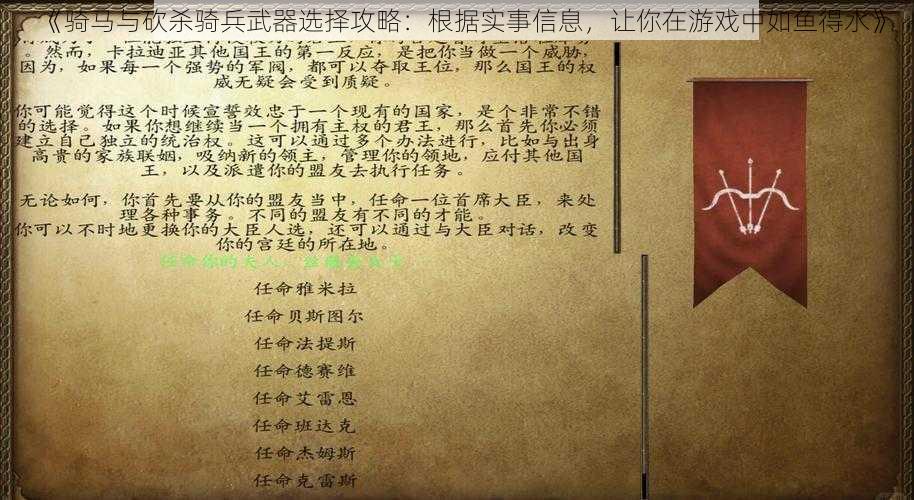 《骑马与砍杀骑兵武器选择攻略：根据实事信息，让你在游戏中如鱼得水》
。然而，卡拉迪亚其他国王的第一反应，是把你当做一个威胁，
因为，如果每一个强势的军阀，都可以夺取王位，那么国王的权
威无疑会受到质疑。
你可能觉得这个时候宣誓效忠于一个现有的国家，是个非常不错
的选择。如果你想继续当一个拥有主权的君王，那么首先你必须
建立自己独立的统治权。这可以通过多个办法进行，比如与出身
高贵的家族联姻，吸纳新的领主，管理你的领地，应付其他国
王，以及派遣你的盟友去执行任务。
无论如何，你首先要从你的盟友当中，任命一位首席大臣，来处
理各种事务。不同的盟友有不同的才能。
你可以不时地更换你的大臣人选，还可以通过与大臣对话，改变
你的宫廷的所在地。
任命你的夫人，
任命雅米拉
任命贝斯图尔
任命法提斯
任命德赛维
任命艾雷恩
任命班达克
任命杰姆斯
任命克雷斯